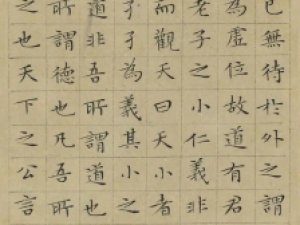 已無待於外之謂
為虛位故道有君
老子之小仁義非
而觀天曰天小者
孑孑為義其小之
道非吾所謂道也
所謂德也凡吾所
之也天下之公言